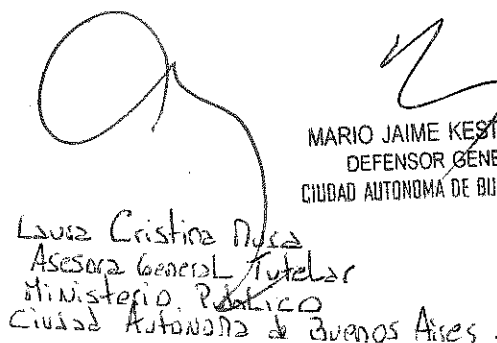 MARIO JAIME KEST
DEFENSOR GENE
CIUDAD AUTONOMA DE BU
Laura Cristina Musa
Asesora General Tutelar
Ministerio Publico
Ciudad Autónoma de Buenos Aires.